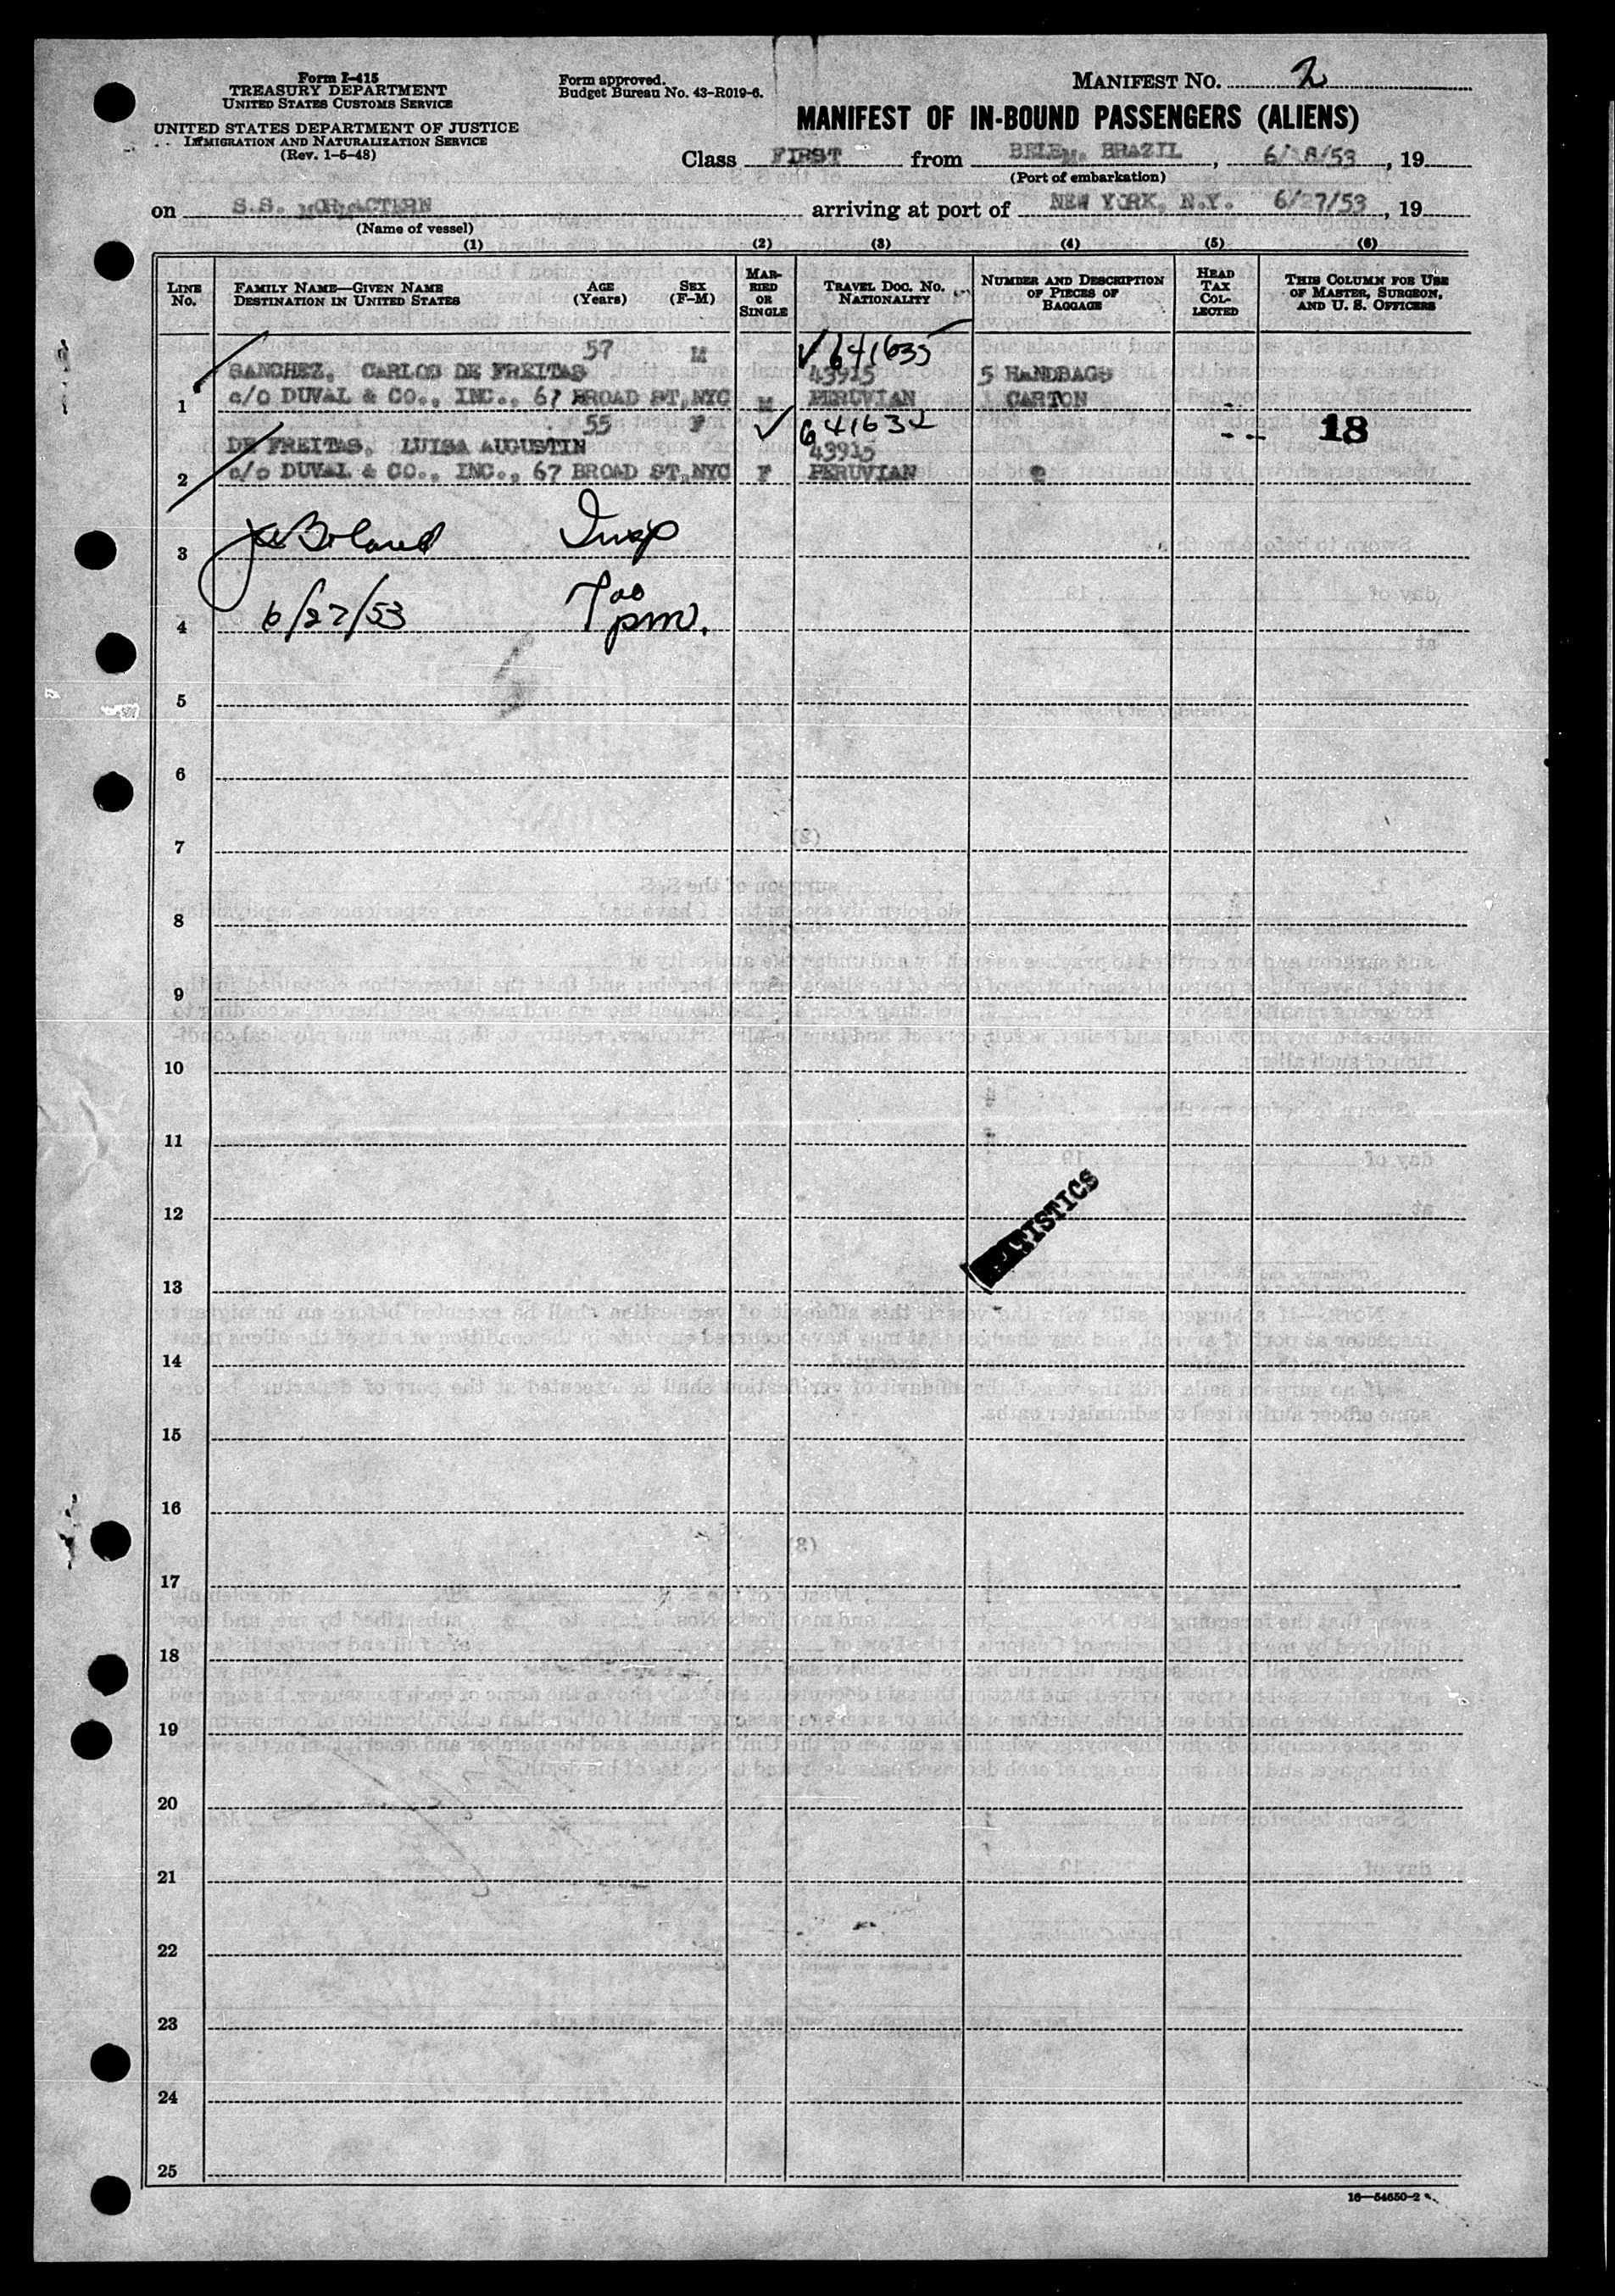 Form I-415
TREASURY DEPARTMENT
UNITED STATES CUSTOMS SERVICE
UNITED STATES DEPARTMENT OF JUSTICE
IMMIGRATION AND NATURALIZATION SERVICE
(Rev. 1-5-48)
Form approved.
Budget Bureau No. 43-R019-6.
MANIFEST NO. 2
MANIFEST OF IN-BOUND PASSENGERS (ALIENS)
Class FIRST from BELEM, BRAZIL, 6/18/53, 19
(Port of embarkation)
on S.S. MORMACTERN arriving at port of NEW YORK, N.Y. 6/27/53, 19
(Name of vessel)
(1) (2) (3) (4) (5) (6)
LINE No. FAMILY NAME—GIVEN NAME DESTINATION IN UNITED STATES AGE (Years) SEX (F-M) MARRIED OR SINGLE TRAVEL DOC. NO. NATIONALITY NUMBER AND DESCRIPTION OF PIECES OF BAGGAGE HEAD TAX COLLECTED THIS COLUMN FOR USE OF MASTER, SURGEON, AND U. S. OFFICERS
57 M ✓ 641635
SANCHEZ, CARLOS DE FREITAS 43915 5 HANDBAGS
1 c/o DUVAL & CO., INC., 67 BROAD ST,NYC M PERUVIAN CARTON -
55 F ✓ 641634 -- 18
DE FREITAS, LUISA AUGUSTIN 43915
2 c/o DUVAL & CO., INC., 67 BROAD ST,NYC F PERUVIAN
3 Boland Insp
4 6/27/53 7 00 pm.
5
6
7
8
9
10
11
12
STATISTICS
13
14
15
16
17
18
19
20
21
22
23
24
25
16—54650-2